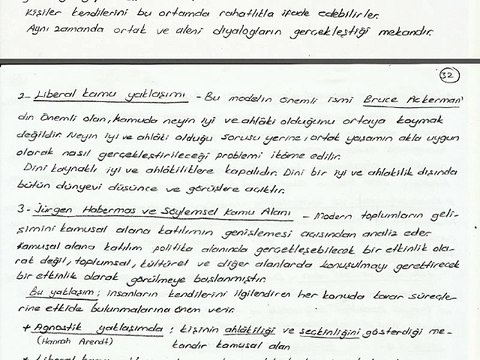 Kişiler kendilerini bu ortamda rahatlıkla ifade edebilirler.
Aynı zamanda ortak ve aleni diyalogların gerçekleştiği mekandır.
32
2- Liberal kamu yaklaşımı - Bu modelin önemli ismi Bruce Ackerman'
dır. Önemli olan, kamuda neyin iyi ve ahlâki olduğunu ortaya koymak
değildir. Neyin iyi ve ahlâki olduğu sorusu yerine, ortak yaşamın akla uygun
olarak nasıl gerçekleştirileceği problemi ikâme edilir.
Dini kaynaklı iyi ve ahlâkiliklere kapalıdır. Dini bir iyi ve ahlâkilik dışında
bütün dünyevi düşünce ve görüşlere açıktır.
3- Jürgen Habermas ve Söylemsel Kamu Alanı - Modern toplumların geli-
şimini kamusal alana katılımın genişlemesi açısından analiz eder.
Kamusal alana katılım politika alanında gerçekleşebilecek bir etkinlik ola-
rak değil, toplumsal, kültürel ve diğer alanlarda konuşulmayı gerektirecek
bir etkinlik olarak görülmeye başlanmıştır.
Bu yaklaşım; insanların kendilerini ilgilendiren her konuda karar süreçle-
rine etkide bulunmalarına önem verir.
+ Agnostik yaklaşımda; kişinin ahlâkiliği ve seçkinliğini gösterdiği me-
(Hannah Arendt) kandır kamusal alan